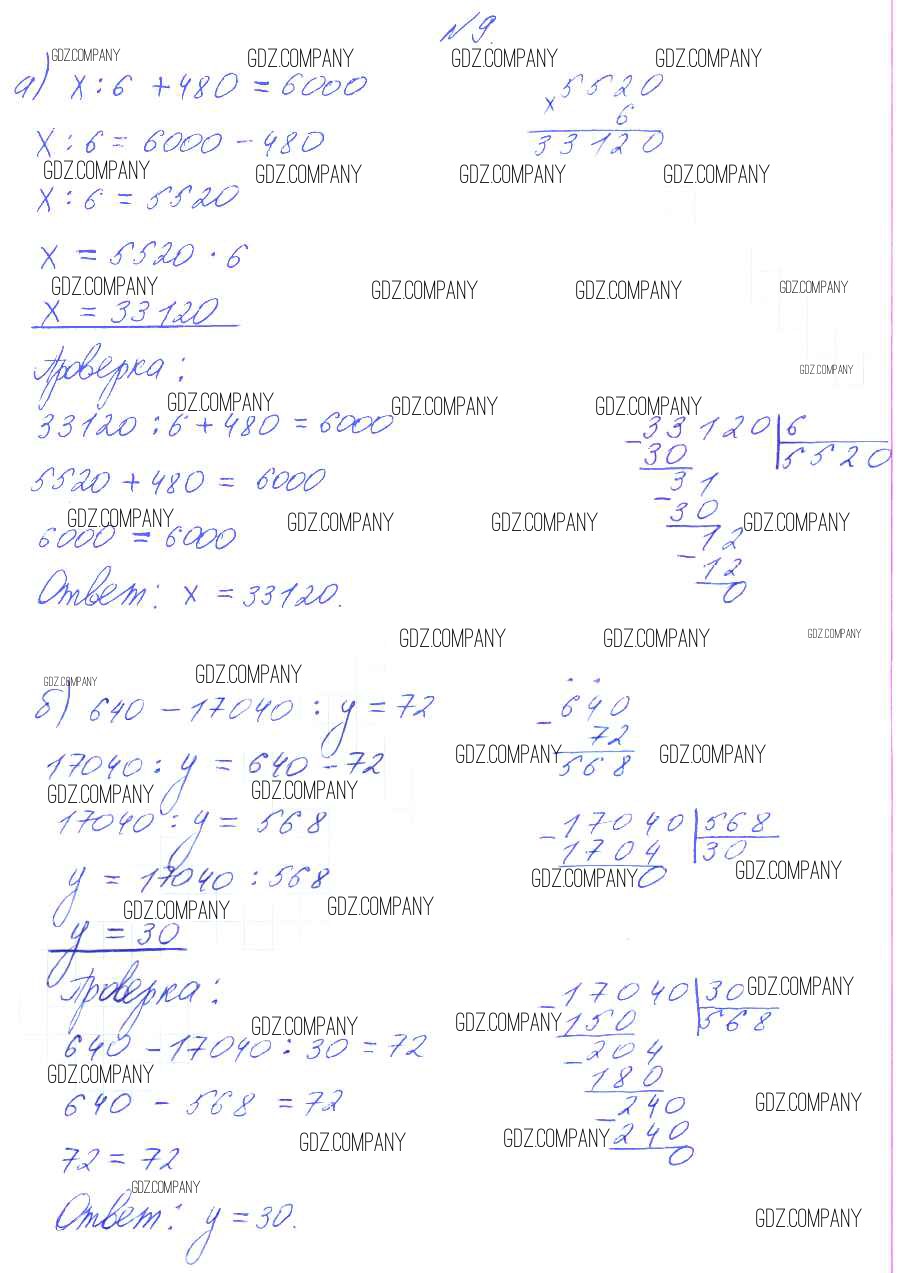 № 9.
GDZ.COMPANY GDZ.COMPANY GDZ.COMPANY GDZ.COMPANY
а) x : 6 + 480 = 6000
5520
x 6
33120
x : 6 = 6000 - 480
GDZ.COMPANY GDZ.COMPANY GDZ.COMPANY GDZ.COMPANY
x : 6 = 5520
x = 5520 · 6
GDZ.COMPANY GDZ.COMPANY GDZ.COMPANY GDZ.COMPANY
x = 33120
Проверка:
GDZ.COMPANY
GDZ.COMPANY GDZ.COMPANY GDZ.COMPANY
33120 : 6 + 480 = 6000
5520 + 480 = 6000
GDZ.COMPANY GDZ.COMPANY GDZ.COMPANY GDZ.COMPANY
6000 = 6000
Ответ: x = 33120.
- 33120 | 6
30 5520
- 31
30
- 12
12
0
GDZ.COMPANY GDZ.COMPANY GDZ.COMPANY
GDZ.COMPANY GDZ.COMPANY
б) 640 - 17040 : y = 72
- 640
72
568
17040 : y = 640 - 72
GDZ.COMPANY GDZ.COMPANY
GDZ.COMPANY GDZ.COMPANY
17040 : y = 568
y = 17040 : 568
- 17040 | 568
1704 30
0
GDZ.COMPANY GDZ.COMPANY
GDZ.COMPANY GDZ.COMPANY
y = 30
Проверка:
GDZ.COMPANY
GDZ.COMPANY GDZ.COMPANY
640 - 17040 : 30 = 72
GDZ.COMPANY GDZ.COMPANY
640 - 568 = 72
- 17040 | 30
150 568
- 204
180
- 240
240
0
GDZ.COMPANY GDZ.COMPANY
72 = 72
GDZ.COMPANY
Ответ: y = 30.
GDZ.COMPANY